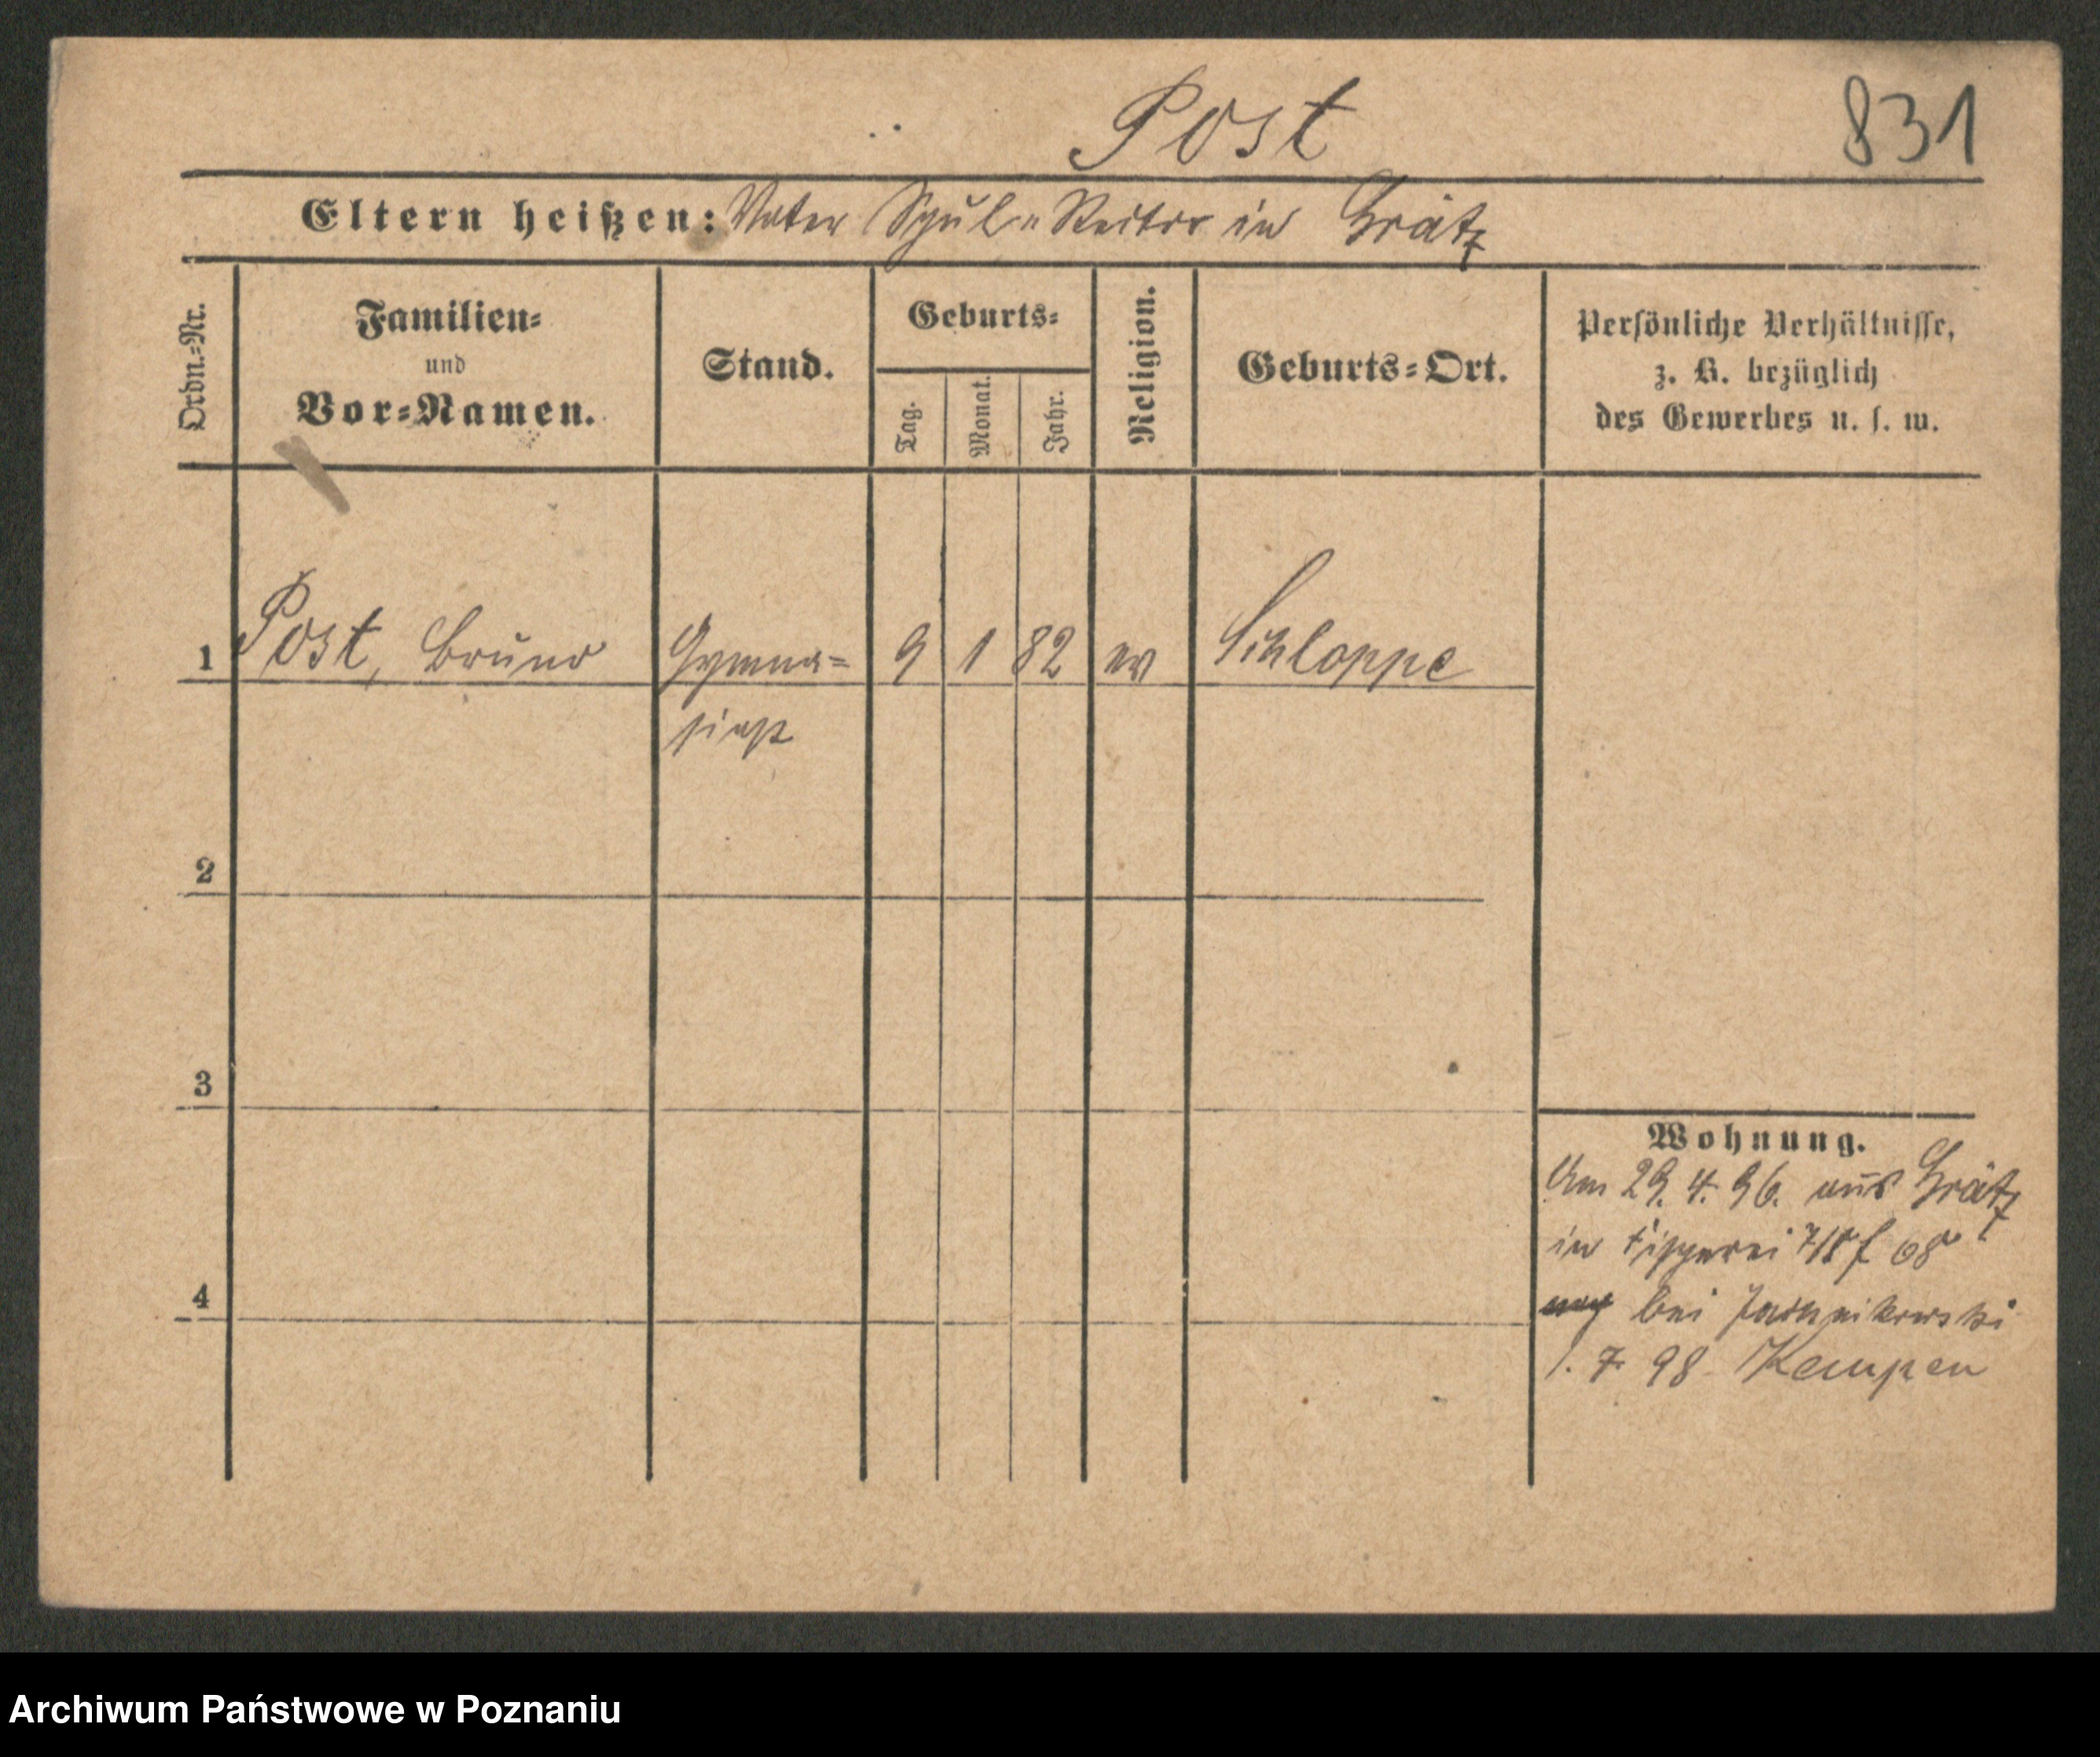 Post 831
Eltern heißen: Vater Schul-Rektor in Grätz
Ordn.=Nr.
Familien=
und
Vor=Namen.
Stand.
Geburts=
Tag.
Monat.
Jahr.
Religion.
Geburts=Ort.
Persönliche Verhältnisse,
z. B. bezüglich
des Gewerbes u. s. w.
1 Post, Bruno Gymna= 9 1 82 ev Schloppe
siast
2
3
4
Wohnung.
Am 29. 4. 96. aus Grätz
in
bei
1. 7. 98 Kempen
Archiwum Państwowe w Poznaniu